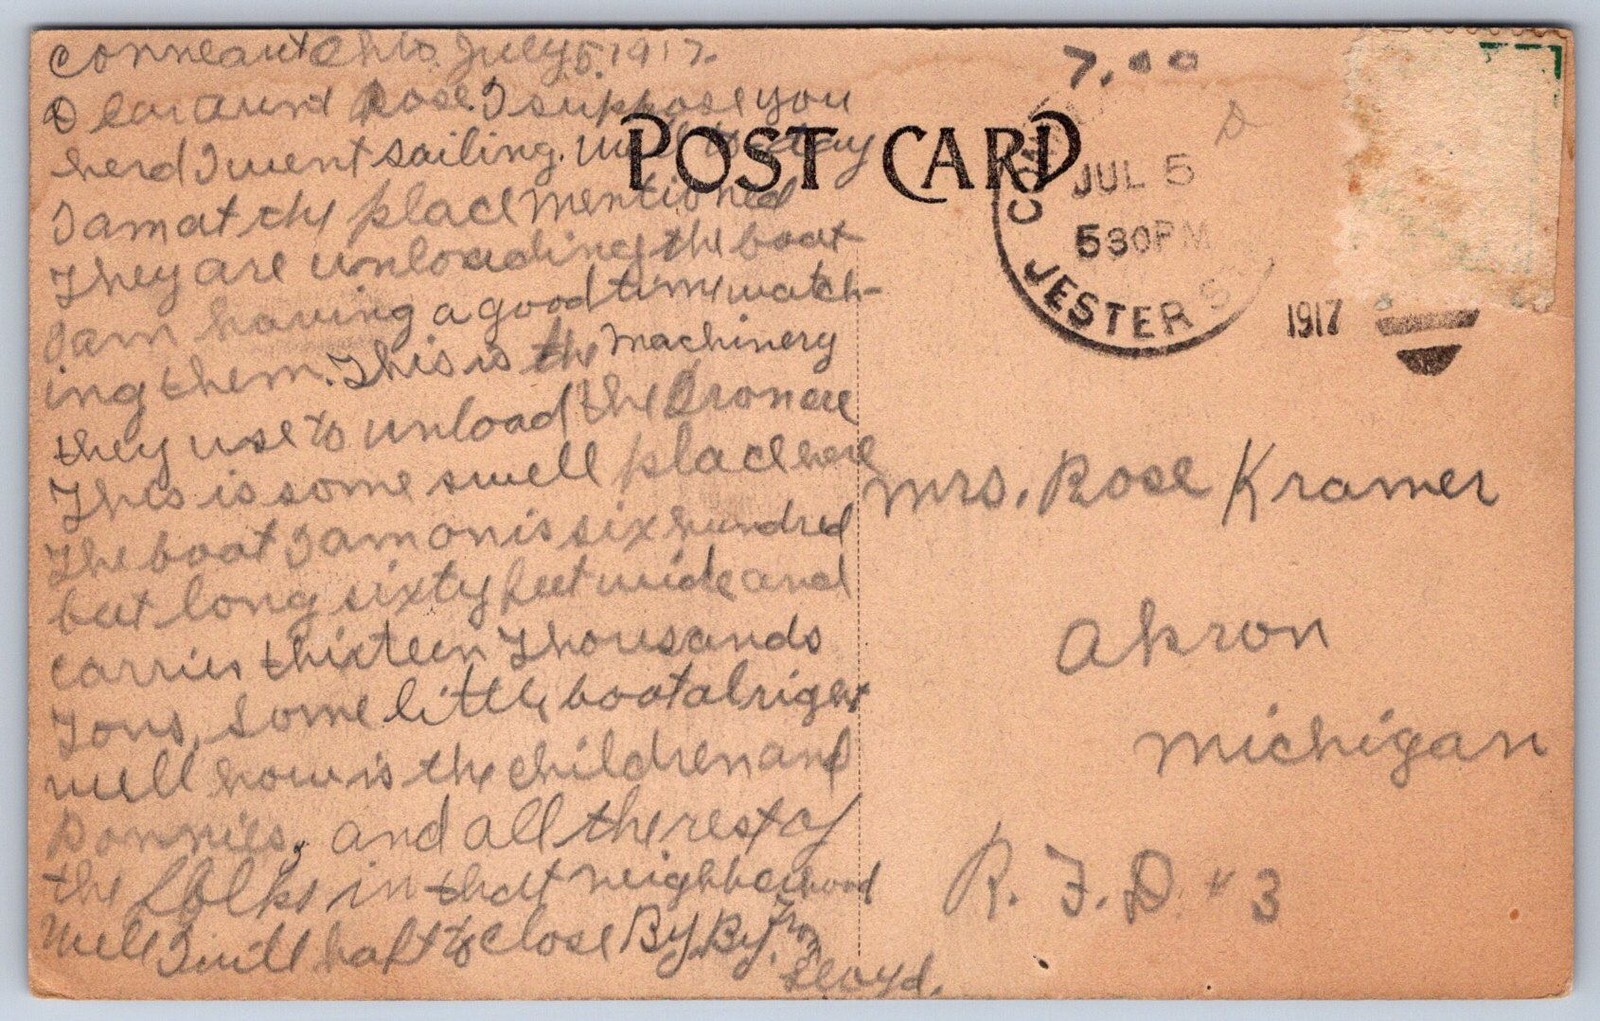 Conneaut Ohio. July 5, 1917.
Dear Aunt Rose. I suppose you
herd I went sailing. Well today
I am at the place mentioned
They are unloading the boat
I am having a good time watch-
ing them. This is the machinery
they use to unload the Iron ore
This is some swell place here
The boat I am on is six hundred
but long sixty feet wide and
carries thixteen Thousands
Tons, some little boat alright
well how is the children and
Donnies, and all the rest of
the folks in that neighborhood
Well I will haft to close By By. From
Lloyd.
POST CARD
7.00
JUL 5
530PM
JESTER
1917
Mrs. Rose Kramer
Akron
Michigan
R. F. D. #3